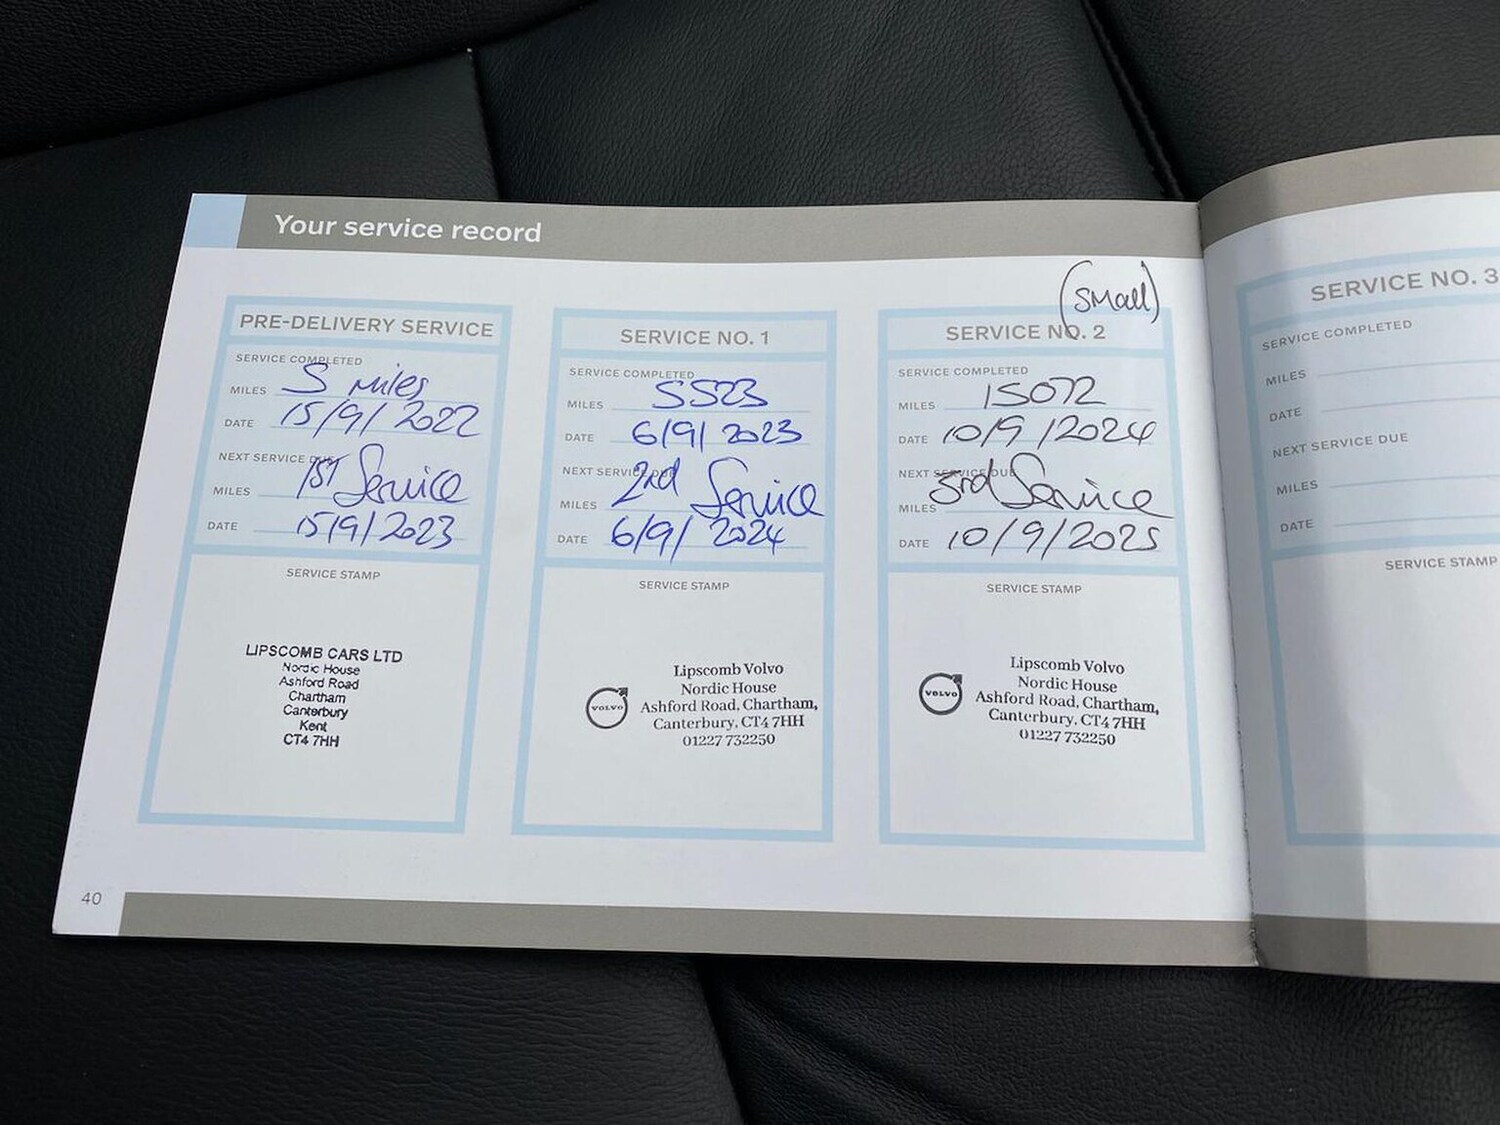 Your service record
PRE-DELIVERY SERVICE
SERVICE COMPLETED
MILES 5 Miles
DATE 15/9/2022
NEXT SERVICE DUE
MILES 1ST Service
DATE 15/9/2023
SERVICE STAMP
LIPSCOMB CARS LTD
Nordic House
Ashford Road
Chartham
Canterbury
Kent
CT4 7HH
SERVICE NO. 1
SERVICE COMPLETED
MILES 5523
DATE 6/9/2023
NEXT SERVICE DUE
MILES 2nd Service
DATE 6/9/2024
SERVICE STAMP
VOLVO
Lipscomb Volvo
Nordic House
Ashford Road, Chartham,
Canterbury, CT4 7HH
01227 732250
(Small)
SERVICE NO. 2
SERVICE COMPLETED
MILES 15072
DATE 10/9/2024
NEXT SERVICE DUE
MILES 3rd Service
DATE 10/9/2025
SERVICE STAMP
VOLVO
Lipscomb Volvo
Nordic House
Ashford Road, Chartham,
Canterbury, CT4 7HH
01227 732250
40
SERVICE NO. 3
SERVICE COMPLETED
MILES
DATE
NEXT SERVICE DUE
MILES
DATE
SERVICE STAMP